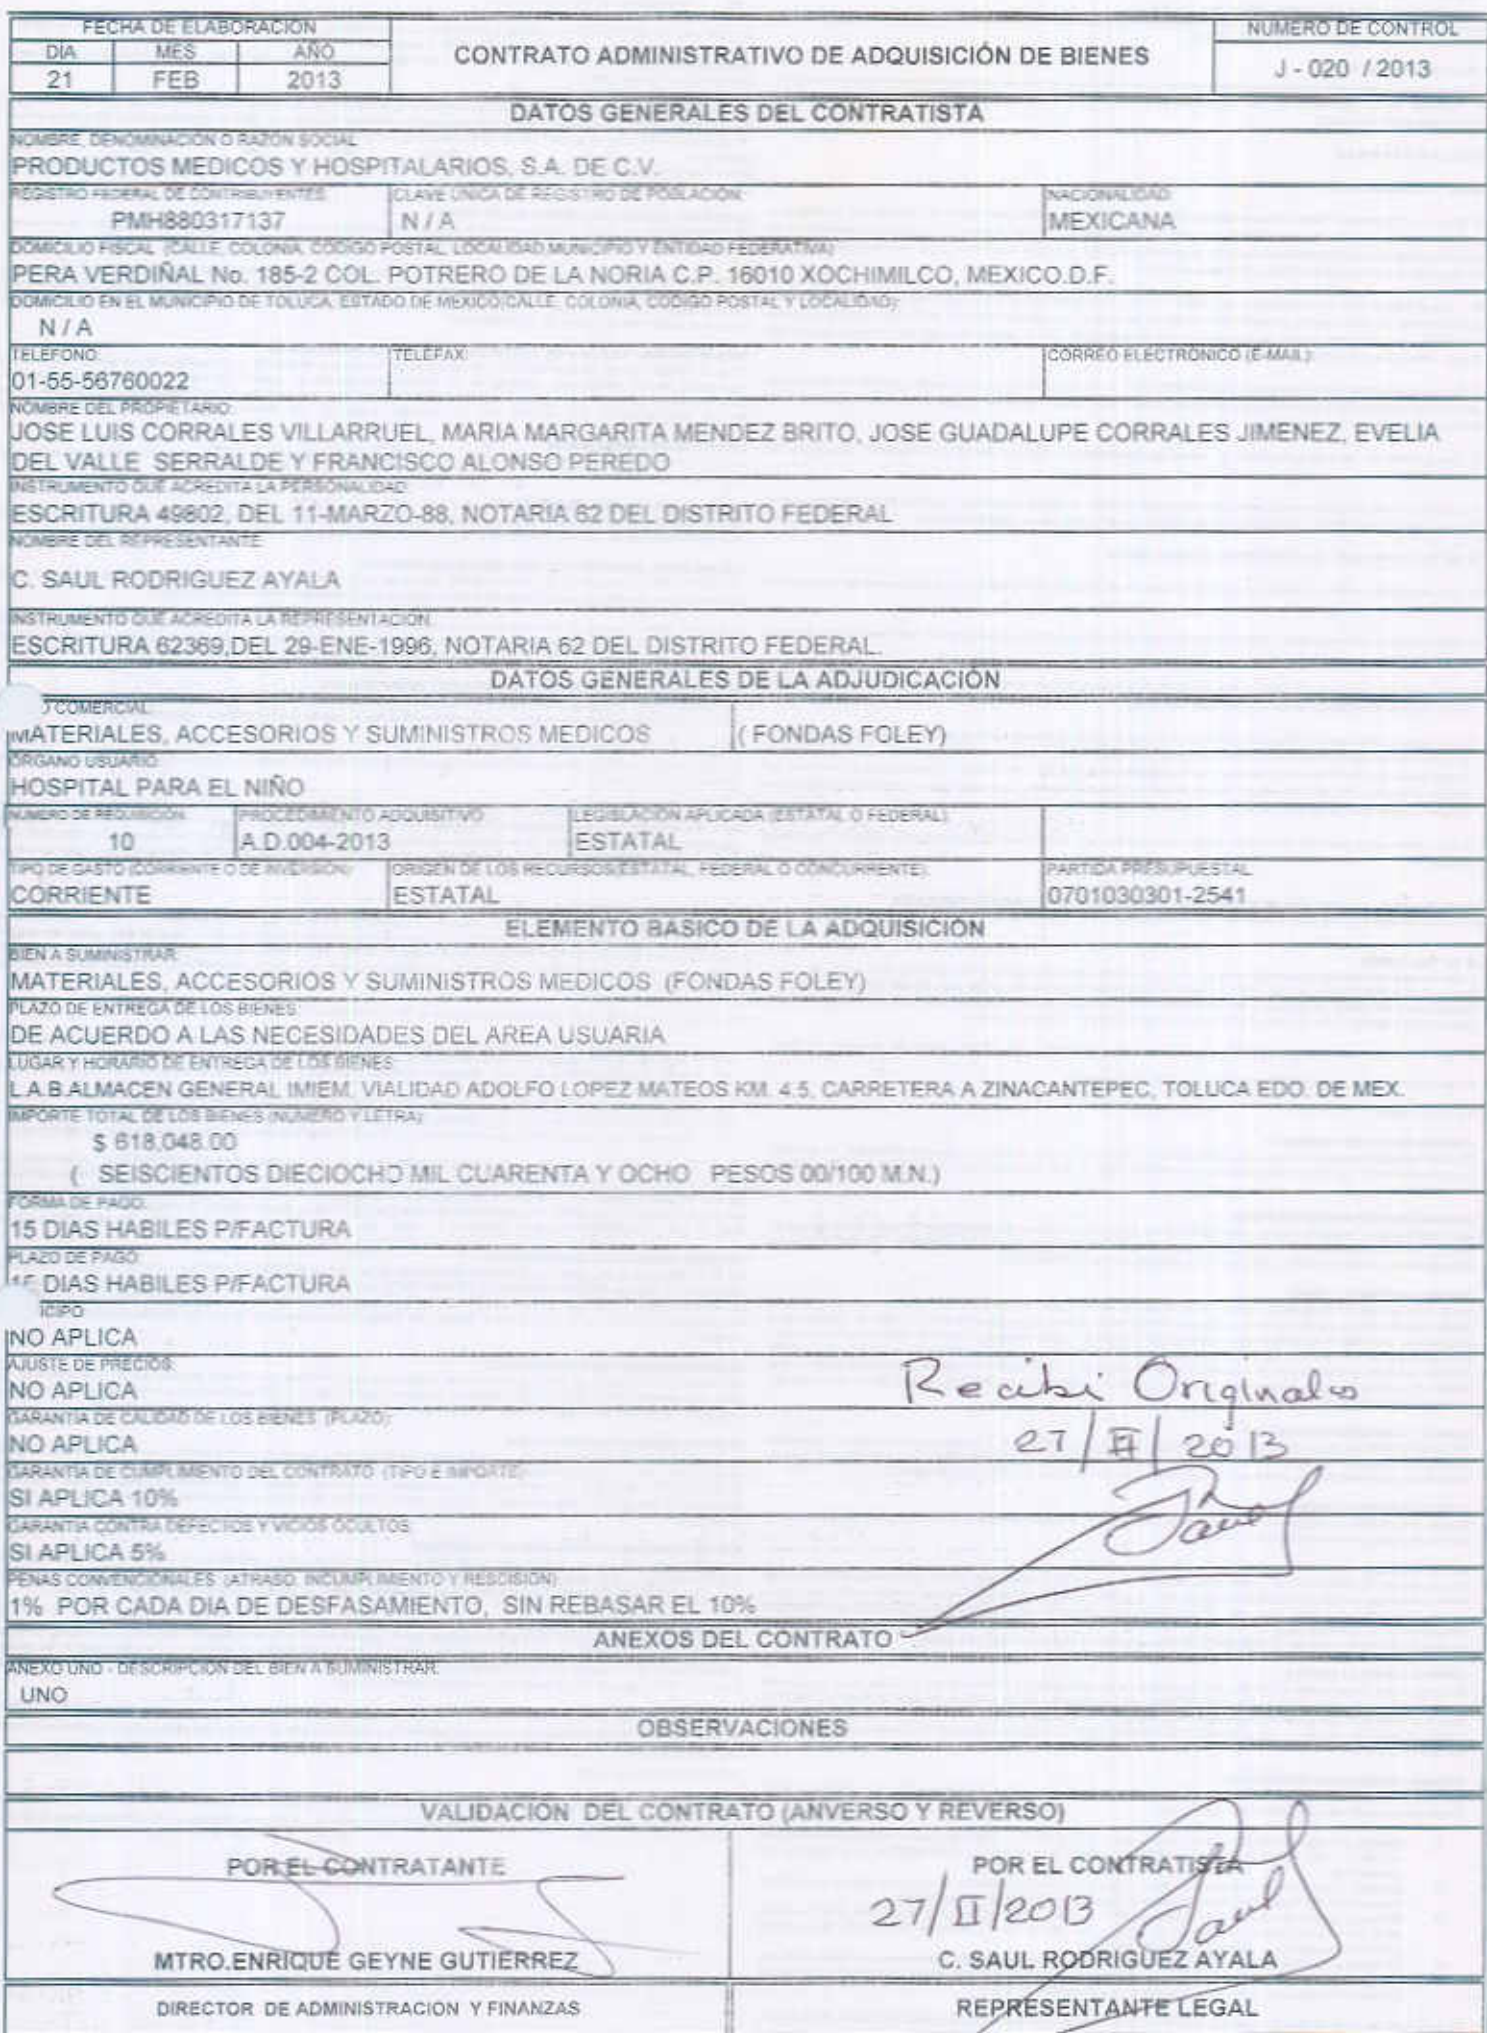 FECHA DE ELABORACIÓN
DIA MES AÑO
21 FEB 2013
CONTRATO ADMINISTRATIVO DE ADQUISICIÓN DE BIENES
NUMERO DE CONTROL
J - 020 / 2013
DATOS GENERALES DEL CONTRATISTA
NOMBRE, DENOMINACIÓN O RAZÓN SOCIAL
PRODUCTOS MEDICOS Y HOSPITALARIOS, S.A. DE C.V.
REGISTRO FEDERAL DE CONTRIBUYENTES: CLAVE UNICA DE REGISTRO DE POBLACIÓN: NACIONALIDAD:
PMH880317137 N / A MEXICANA
DOMICILIO FISCAL (CALLE, COLONIA, CODIGO POSTAL, LOCALIDAD, MUNICIPIO Y ENTIDAD FEDERATIVA)
PERA VERDIÑAL No. 185-2 COL. POTRERO DE LA NORIA C.P. 16010 XOCHIMILCO, MEXICO.D.F.
DOMICILIO EN EL MUNICIPIO DE TOLUCA, ESTADO DE MEXICO(CALLE, COLONIA, CODIGO POSTAL Y LOCALIDAD):
N / A
TELEFONO: TELEFAX: CORREO ELECTRÓNICO (E-MAIL):
01-55-56760022
NOMBRE DEL PROPIETARIO:
JOSE LUIS CORRALES VILLARRUEL, MARIA MARGARITA MENDEZ BRITO, JOSE GUADALUPE CORRALES JIMENEZ, EVELIA
DEL VALLE SERRALDE Y FRANCISCO ALONSO PEREDO
INSTRUMENTO QUE ACREDITA LA PERSONALIDAD:
ESCRITURA 49802, DEL 11-MARZO-88, NOTARIA 62 DEL DISTRITO FEDERAL
NOMBRE DEL REPRESENTANTE:
C. SAUL RODRIGUEZ AYALA
INSTRUMENTO QUE ACREDITA LA REPRESENTACIÓN:
ESCRITURA 62369,DEL 29-ENE-1996, NOTARIA 62 DEL DISTRITO FEDERAL.
DATOS GENERALES DE LA ADJUDICACIÓN
COMERCIAL:
MATERIALES, ACCESORIOS Y SUMINISTROS MEDICOS ( FONDAS FOLEY)
ÓRGANO USUARIO:
HOSPITAL PARA EL NIÑO
NUMERO DE REQUISICIÓN: PROCEDIMIENTO ADQUISITIVO: LEGISLACIÓN APLICADA (ESTATAL O FEDERAL):
10 A.D.004-2013 ESTATAL
TIPO DE GASTO (CORRIENTE O DE INVERSIÓN): ORIGEN DE LOS RECURSOS(ESTATAL, FEDERAL O CONCURRENTE): PARTIDA PRESUPUESTAL:
CORRIENTE ESTATAL 0701030301-2541
ELEMENTO BASICO DE LA ADQUISICION
BIEN A SUMINISTRAR:
MATERIALES, ACCESORIOS Y SUMINISTROS MEDICOS (FONDAS FOLEY)
PLAZO DE ENTREGA DE LOS BIENES:
DE ACUERDO A LAS NECESIDADES DEL AREA USUARIA
LUGAR Y HORARIO DE ENTREGA DE LOS BIENES:
L.A.B.ALMACEN GENERAL IMIEM, VIALIDAD ADOLFO LOPEZ MATEOS KM. 4.5, CARRETERA A ZINACANTEPEC, TOLUCA EDO. DE MEX.
IMPORTE TOTAL DE LOS BIENES (NUMERO Y LETRA):
$ 618,048.00
( SEISCIENTOS DIECIOCHO MIL CUARENTA Y OCHO PESOS 00/100 M.N.)
FORMA DE PAGO:
15 DIAS HABILES P/FACTURA
PLAZO DE PAGO:
15 DIAS HABILES P/FACTURA
ICIPO
NO APLICA
AJUSTE DE PRECIOS:
NO APLICA
Recibi Originales
GARANTIA DE CALIDAD DE LOS BIENES (PLAZO):
NO APLICA
27/II/2013
GARANTIA DE CUMPLIMIENTO DEL CONTRATO (TIPO E IMPORTE)
SI APLICA 10%
Saul
GARANTIA CONTRA DEFECTOS Y VICIOS OCULTOS:
SI APLICA 5%
PENAS CONVENCIONALES (ATRASO, INCUMPLIMIENTO Y RESCISIÓN)
1% POR CADA DIA DE DESFASAMIENTO, SIN REBASAR EL 10%
ANEXOS DEL CONTRATO
ANEXO UNO - DESCRIPCION DEL BIEN A SUMINISTRAR:
UNO
OBSERVACIONES
VALIDACIÓN DEL CONTRATO (ANVERSO Y REVERSO)
POR EL CONTRATANTE POR EL CONTRATISTA
27/II/2013 Saul
MTRO.ENRIQUE GEYNE GUTIERREZ C. SAUL RODRIGUEZ AYALA
DIRECTOR DE ADMINISTRACION Y FINANZAS REPRESENTANTE LEGAL